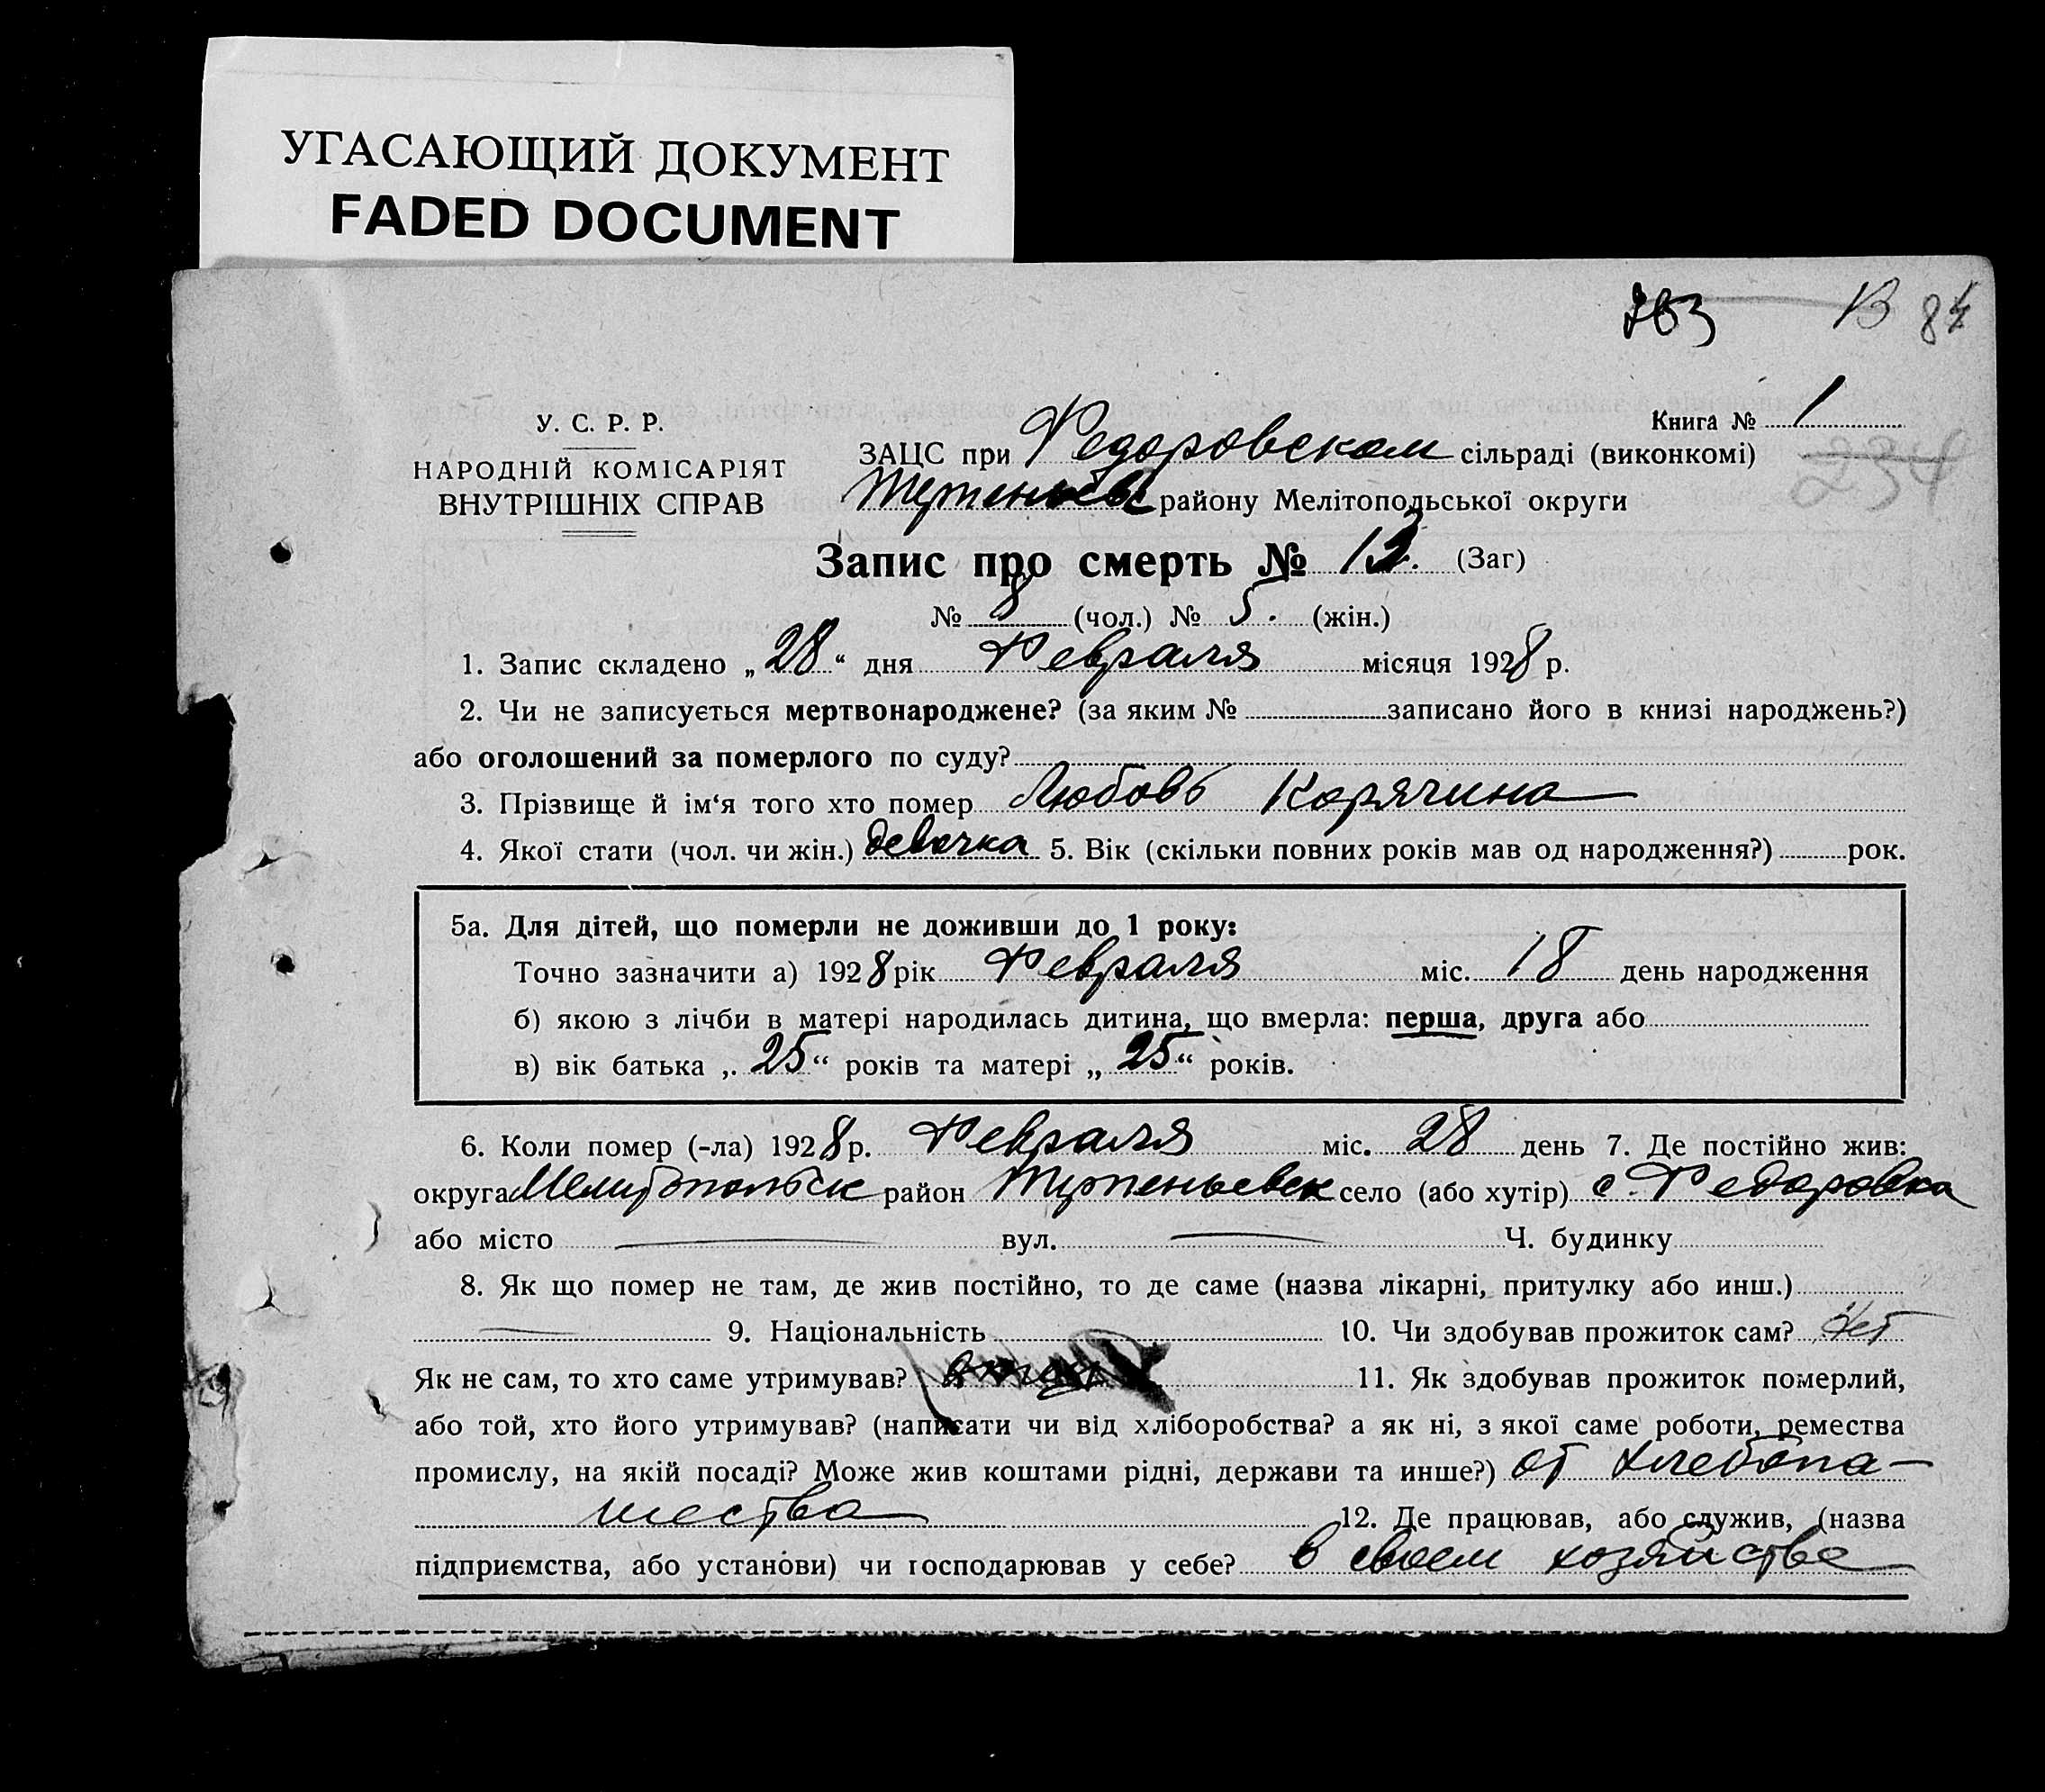 УГАСАЮЩИЙ ДОКУМЕНТ
FADED DOCUMENT
У. С. Р. Р.
НАРОДНІЙ КОМІСАРІЯТ
ВНУТРІШНІХ СПРАВ
Книга № 1
234
ЗАЦС при Федоровском сільраді (виконкомі)
району Мелітопольської округи
Запис про смерть № 13. (Заг)
№ 8 (чол.) № 5. (жін.)
1. Запис складено „28“ дня Февраля місяця 1928 р.
2. Чи не записується мертвонароджене? (за яким № записано його в книзі народжень?)
або оголошений за померлого по суду?
3. Прізвище й ім‘я того хто помер Любовь Корячина
4. Якої стати (чол. чи жін.) девочка 5. Вік (скільки повних років мав од народження?) рок.
5а. Для дітей, що померли не доживши до 1 року:
Точно зазначити а) 1928 рік Февраля міс. 18 день народження
б) якою з лічби в матері народилась дитина, що вмерла: перша, друга або
в) вік батька „25“ років та матері „25“ років.
6. Коли помер (-ла) 1928 р. Февраля міс. 28 день 7. Де постійно жив:
округа Мелитопольск район Тургеньевск село (або хутір) с. Федоровка
або місто — вул. — Ч. будинку
8. Як що помер не там, де жив постійно, то де саме (назва лікарні, притулку або инш.)
— 9. Національність 10. Чи здобував прожиток сам? Нет
Як не сам, то хто саме утримував? 11. Як здобував прожиток померлий,
або той, хто його утримував? (написати чи від хліборобства? а як ні, з якої саме роботи, ремества
промислу, на якій посаді? Може жив коштами рідні, держави та инше?) от хлебопа-
шества 12. Де працював, або служив, (назва
підприємства, або установи) чи господарював у себе? в своем хозяйстве